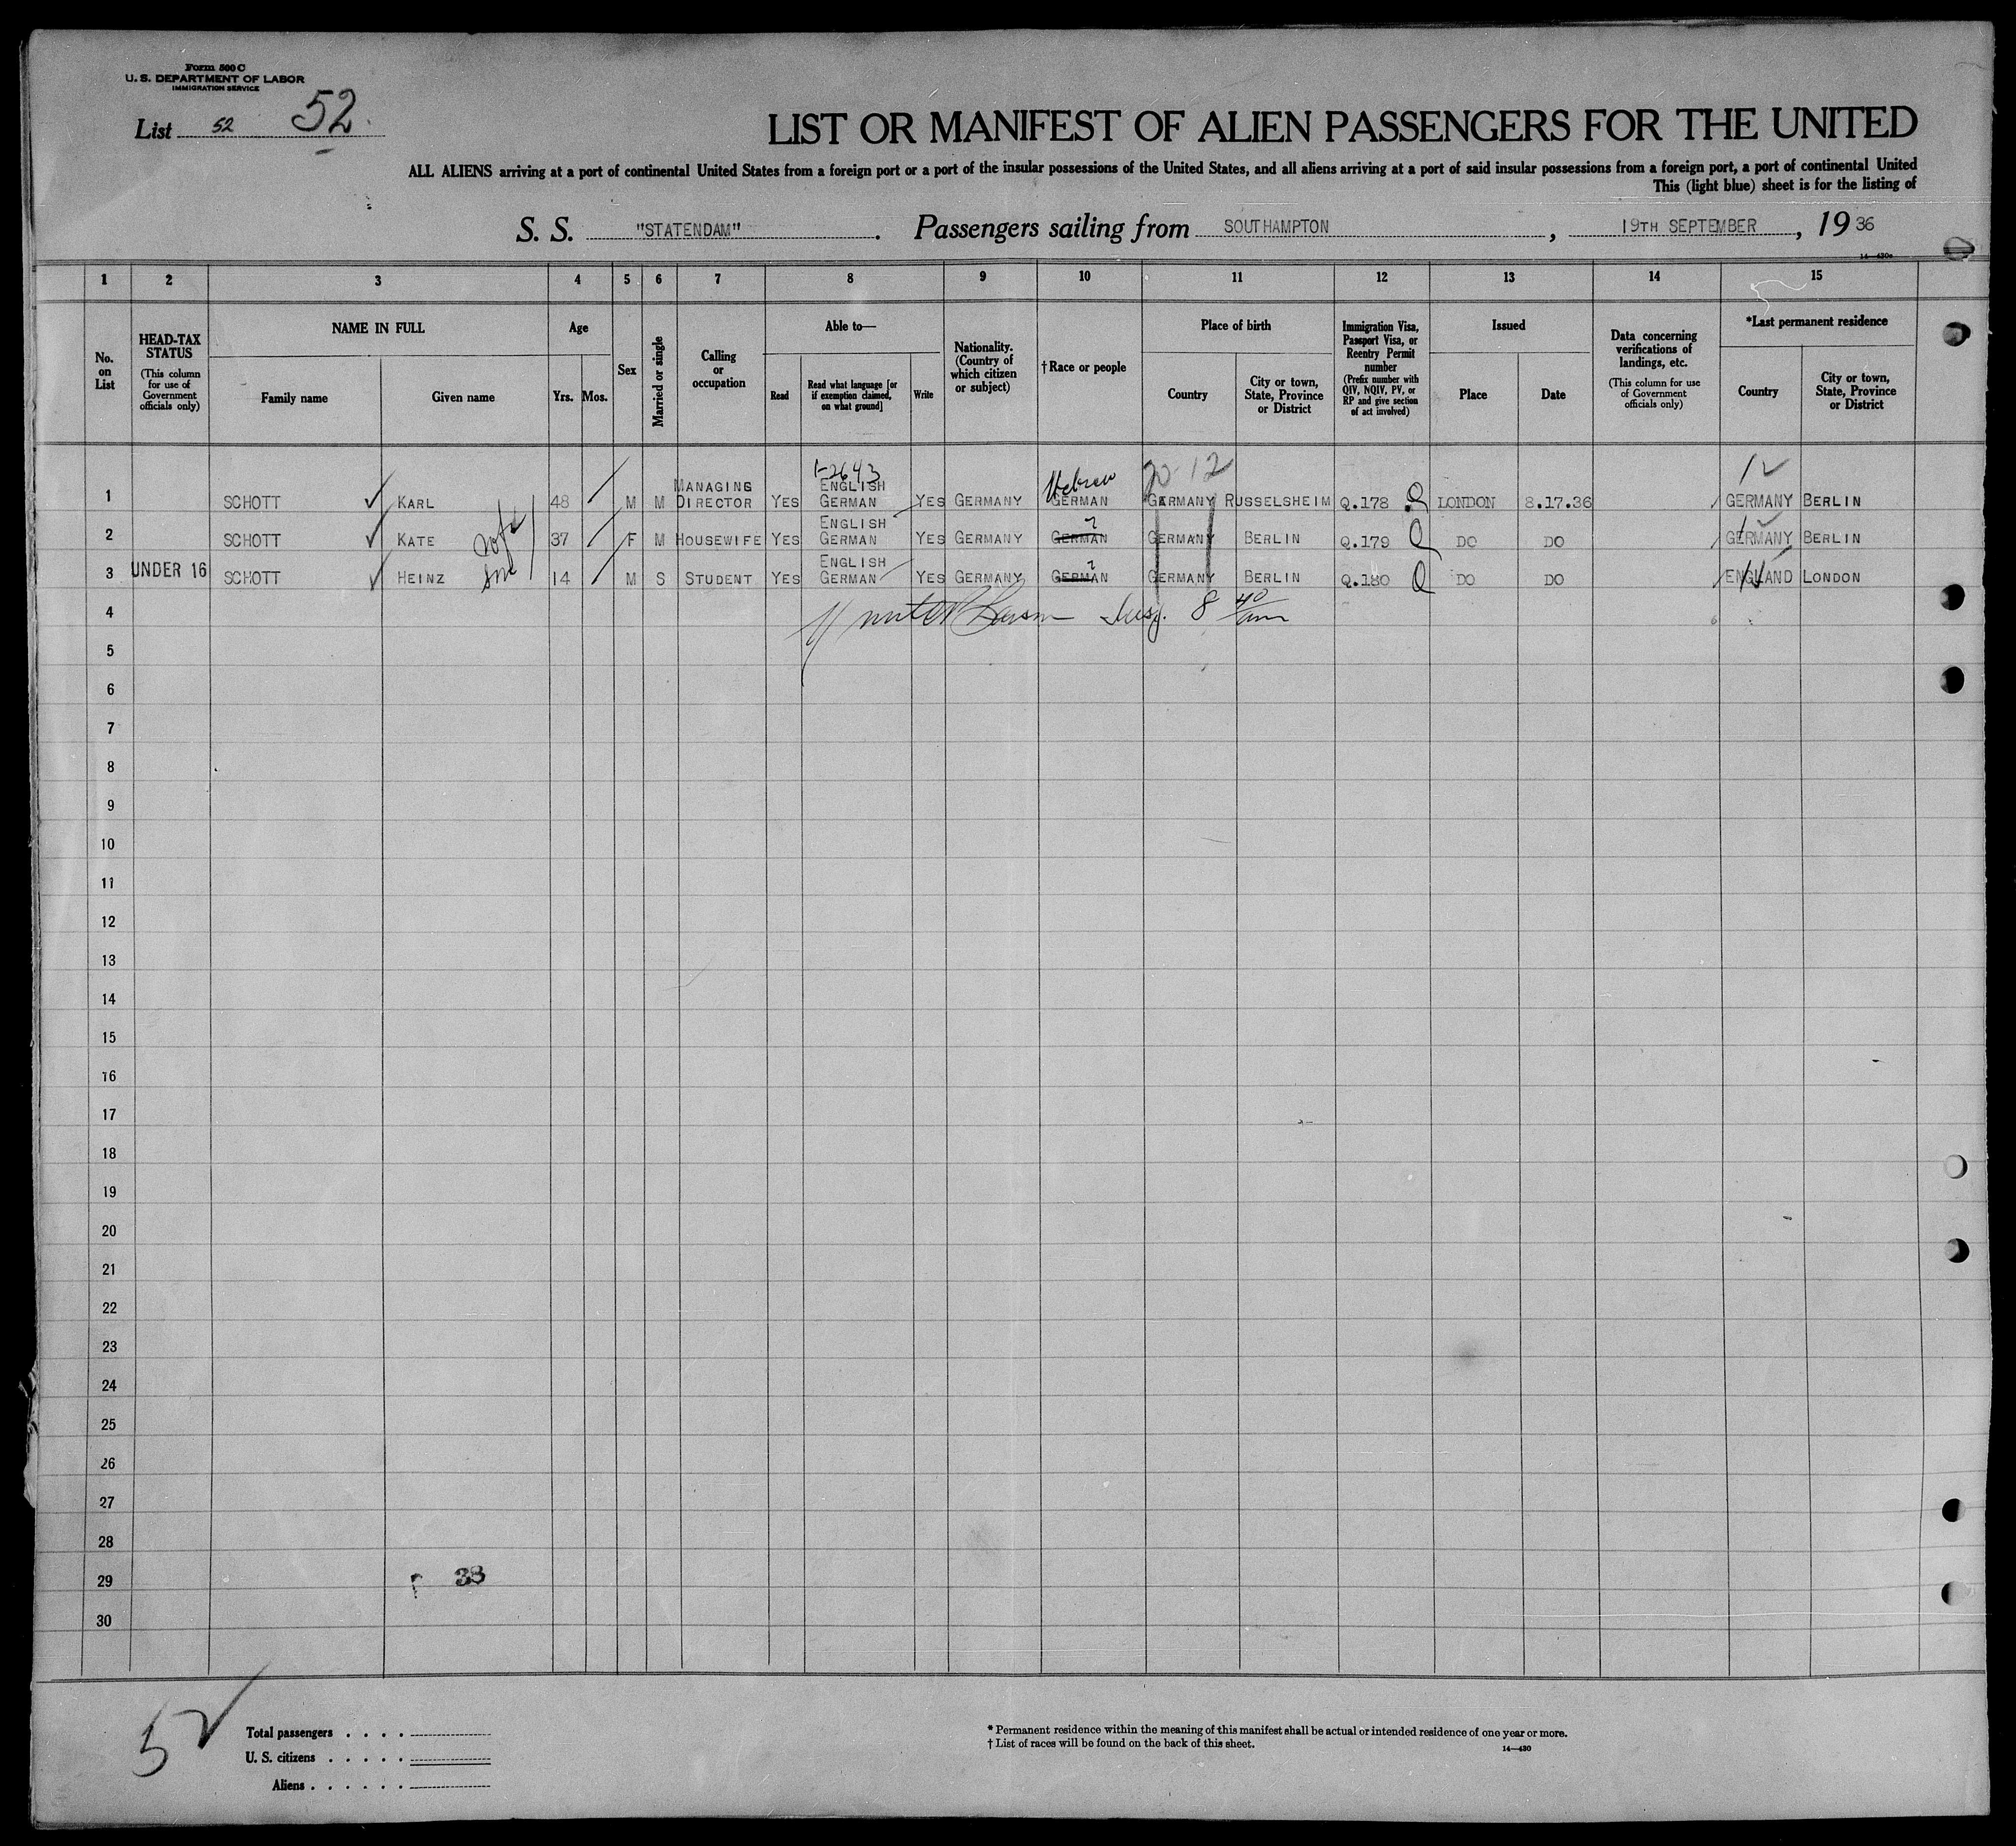 Form 500 C
U. S. DEPARTMENT OF LABOR
IMMIGRATION SERVICE
List 52 52.
LIST OR MANIFEST OF ALIEN PASSENGERS FOR THE UNITED
ALL ALIENS arriving at a port of continental United States from a foreign port or a port of the insular possessions of the United States, and all aliens arriving at a port of said insular possessions from a foreign port, a port of continental United
This (light blue) sheet is for the listing of
S. S. "STATENDAM". Passengers sailing from SOUTHAMPTON, 19TH SEPTEMBER, 19 36
14—430a
1 2 3 4 5 6 7 8 9 10 11 12 13 14 15
No. on List
HEAD-TAX STATUS (This column for use of Government officials only)
NAME IN FULL
Family name Given name
Age
Yrs. Mos.
Sex
Married or single
Calling or occupation
Able to—
Read Read what language [or if exemption claimed, on what ground] Write
Nationality. (Country of which citizen or subject)
†Race or people
Place of birth
Country City or town, State, Province or District
Immigration Visa, Passport Visa, or Reentry Permit number (Prefix number with QIV, NQIV, PV, or RP and give section of act involved)
Issued
Place Date
Data concerning verifications of landings, etc. (This column for use of Government officials only)
*Last permanent residence
Country City or town, State, Province or District
1-2643 Hebrew 20 12 12
1 SCHOTT KARL 48 M M MANAGING DIRECTOR YES ENGLISH GERMAN YES GERMANY GERMAN GERMANY RUSSELSHEIM Q.178 LONDON 8.17.36 GERMANY BERLIN
2 SCHOTT KATE wife 37 F M HOUSEWIFE YES ENGLISH GERMAN YES GERMANY GERMAN GERMANY BERLIN Q.179 DO DO GERMANY BERLIN
3 UNDER 16 SCHOTT HEINZ son 14 M S STUDENT YES ENGLISH GERMAN YES GERMANY GERMAN GERMANY BERLIN Q.180 DO DO ENGLAND LONDON
4 Insp. 8 40 am
5
6
7
8
9
10
11
12
13
14
15
16
17
18
19
20
21
22
23
24
25
26
27
28
29 33
30
52
Total passengers
U. S. citizens
Aliens
* Permanent residence within the meaning of this manifest shall be actual or intended residence of one year or more.
† List of races will be found on the back of this sheet.
14—430